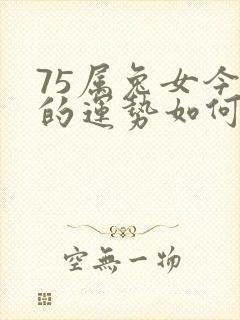 75属兔女今
的運势如何
空無一物